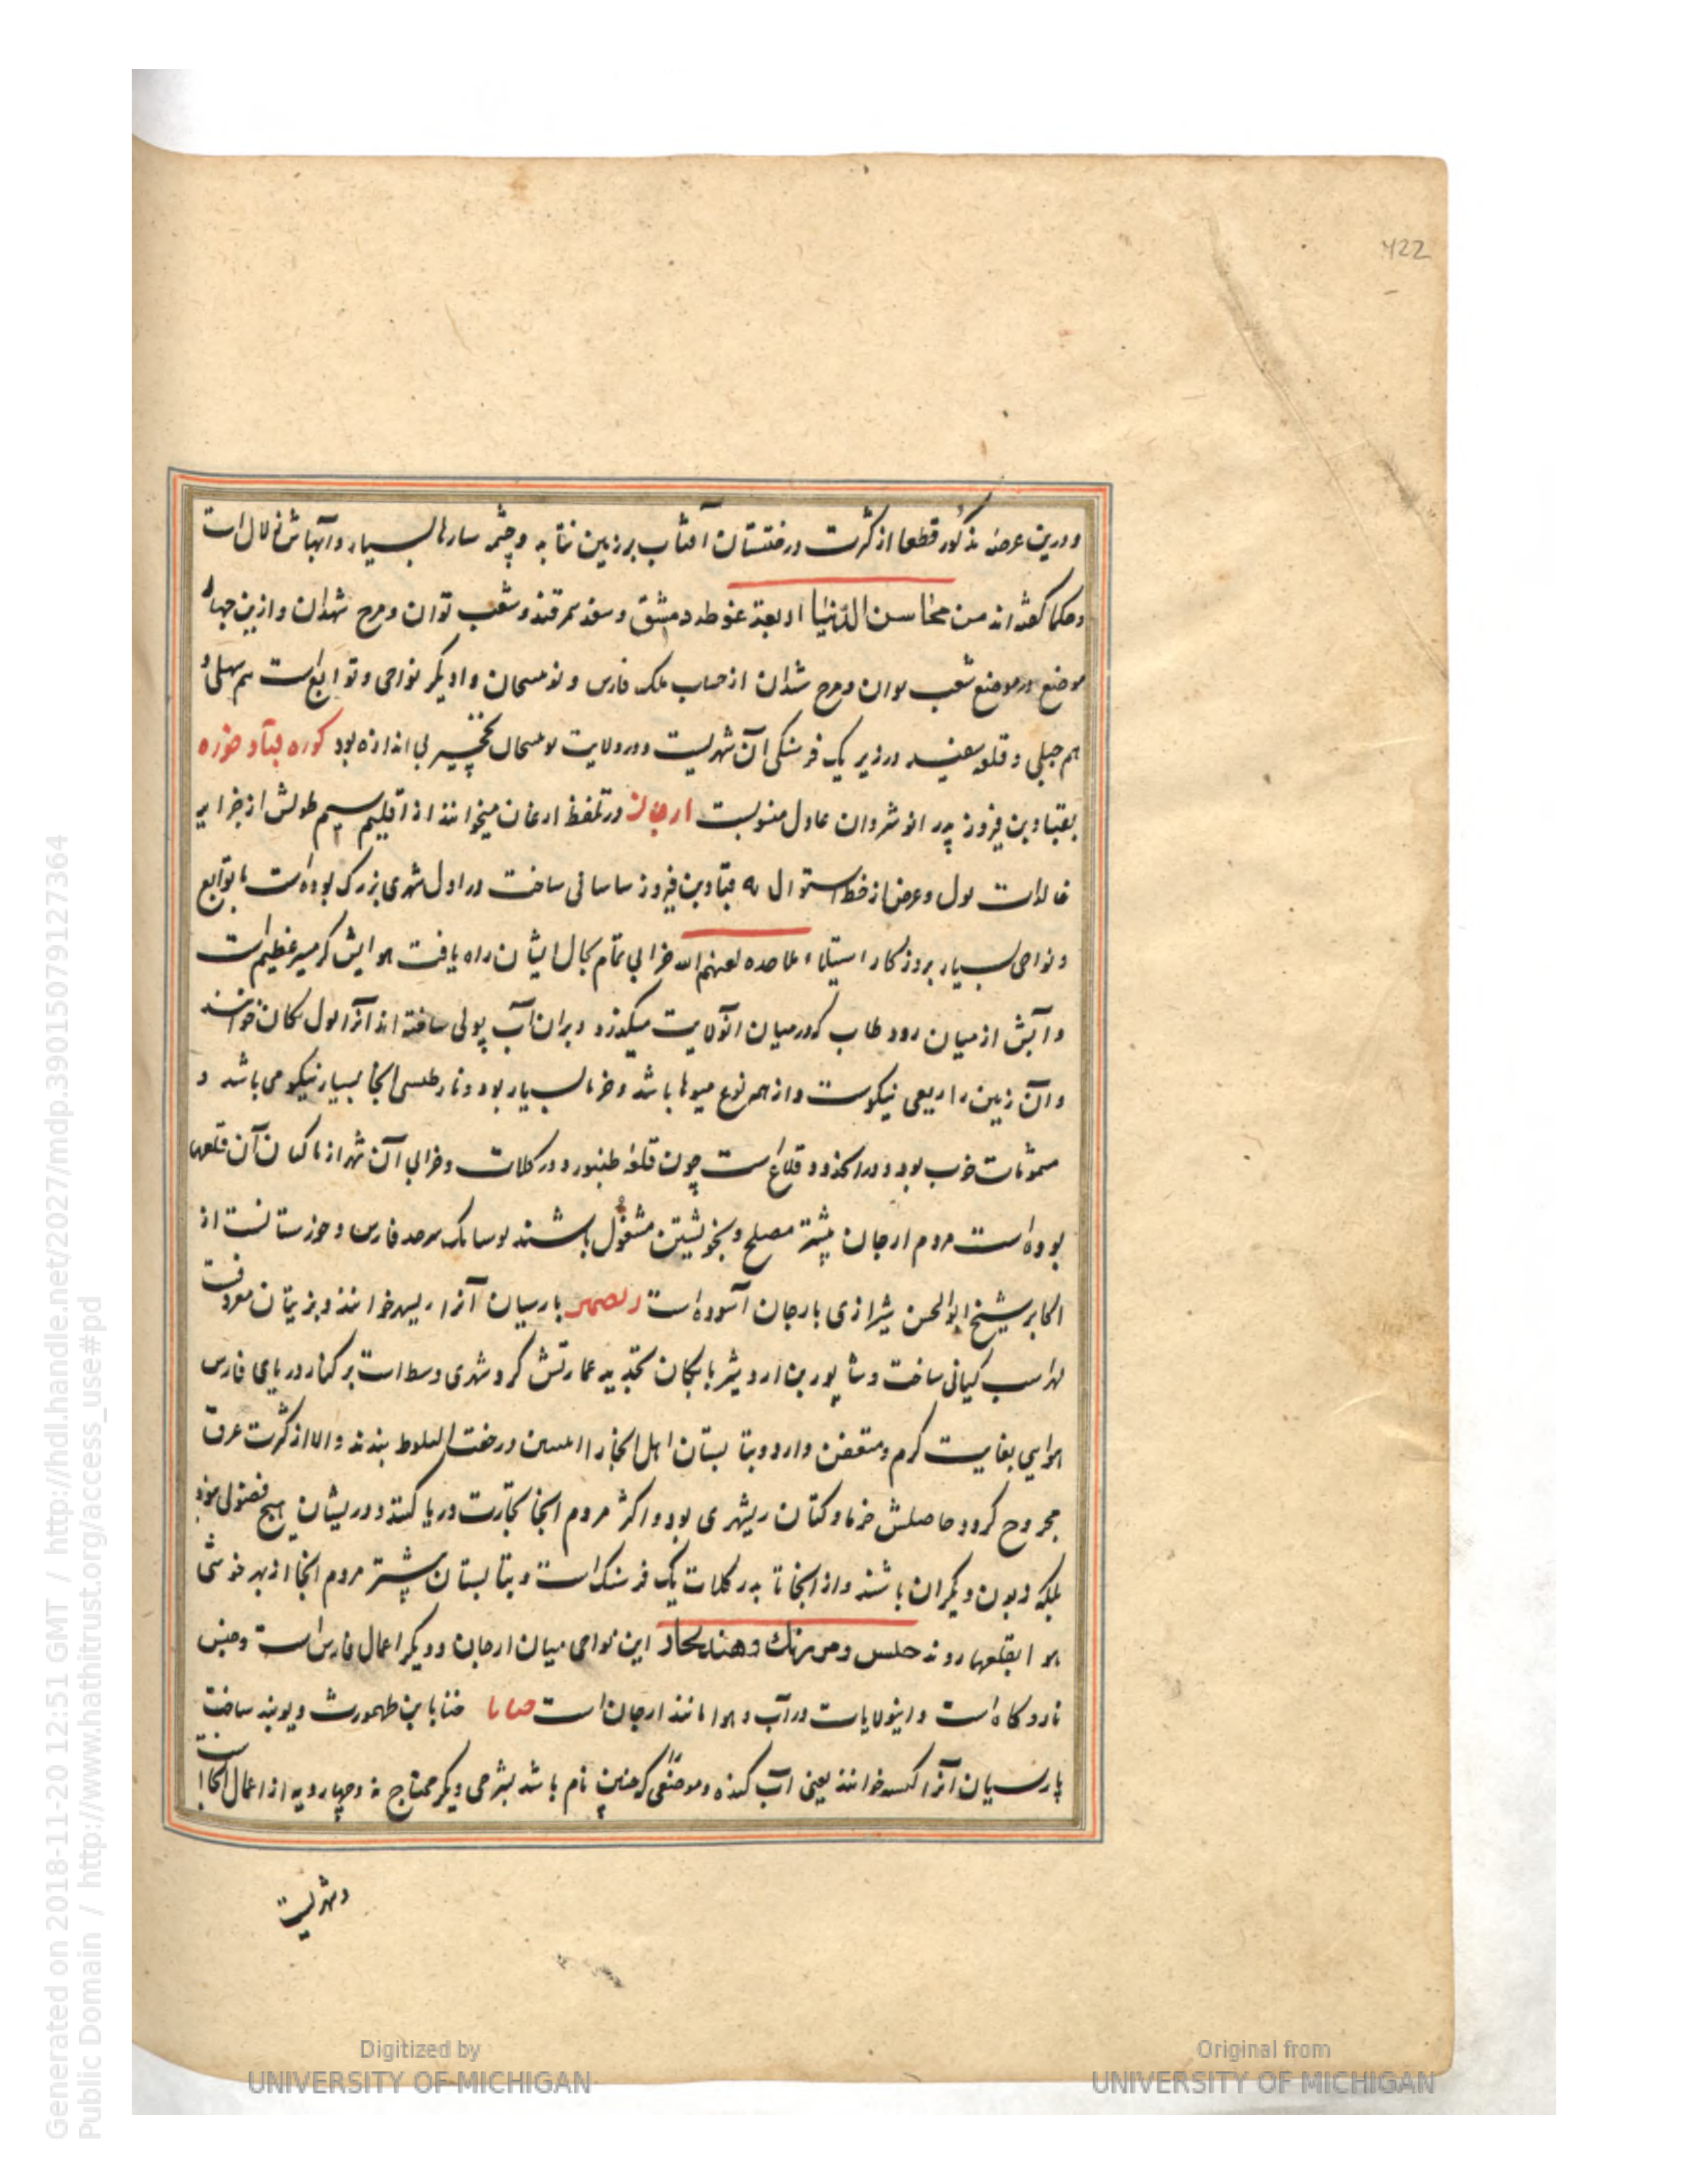 422
و درین عرصه مذکور قطعا از کثرت درختستان آفتاب بر زمین نتابد و چشمه سارها بسیار و آبهاش زلال است
و حکما گفته اند من محاسن الدنیا اربعة غوطه دمشق و سغد سمرقند و شعب توان و مرج شهدان و ازین چهار
موضع در موضع شعب بوان و مرج شدان از حساب ملک فارس و نومسحان و او دیگر نواحی و توابع است هم سهلی و
هم جبلی و قلعه سفید در زیر یک فرسنگی آن شهریست و در ولایت نومسحان نخچیر بی اندازه بود کوره قباد خوره
بقباد بن فیروز پدر انوشروان عادل منسوبست ارجان در تلفظ ارغان میخوانند از اقلیم سیم طولش از جزایر
خالدات لول و عرض از خط استوا ل له قباد بن فیروز ساسانی ساخت در اول شهری بزرک بوده است با توابع
و نواحی بسیار بروزکار استیلاء ملاحده لعنهم الله خرابی تمام بحال ایشان راه یافت هوایش کرمسیر عظیم است
و آبش از میان رود طاب که در میان آنولایت میکذرد و بران آب پولی ساخته اند آنرا بول تکان خوانند
و آن زمین را ریعی نیکوست و از همه نوع میوها باشد و خرما بسیار بود و نار طلسی آنجا بسیار نیکو می باشد و
مشمومات خوب بود و در آنحدود قلاع است چون قلعه طنبور و در کلات و خرابی آن شهر از ناکسان آن قلعها
بوده است مردم ارجان بیشتر مصلح و بخویشتن مشغول باشند بوسانک سرحد فارس و خوزستانست از
اکابر شیخ ابوالحسن شیرازی بارجان آسوده است ریصهر پارسیان آنرا ریسهر خوانند و بزیتان معروفست
لهراسب کیانی ساخت و شاپور بن اردشیر بابکان تجدید عمارتش کرد شهری وسط است بر کنار دریای فارس
هوایی بغایت کرم و متعفن دارد و بتابستان اهل آنجا را درخت البلوط بندند و الا از کثرت عرق
مجروح کردد حاصلش خرما و کتان ریشهری بود و اکثر مردم آنجا تجارت دریا کنند و در یشان هیچ فضولی نبود
بلکه زبون دیکران باشند و از آنجا تا بدر کلات یک فرسنک است و بتابستان بیشتر مردم آنجا از بهر خوشی
هوا بقلعها روند حلس و این نواحی میان ارجان و دیکر اعمال فارس است و حبس
نارو کاه است و اینولایات در آب و هوا مانند ارجان است حنابا بن طهمورث دیوبند ساخت
پارسیان آنرا خوانند یعنی آب کنده و موضعی که چنین نام باشد بشرحی دیکر محتاج نه و چهار دیه از اعمال آنجاست
و شهریست
Digitized by UNIVERSITY OF MICHIGAN
Original from UNIVERSITY OF MICHIGAN
Generated on 2018-11-20 12:51 GMT / http://hdl.handle.net/2027/mdp.39015079127364
Public Domain / http://www.hathitrust.org/access_use#pd